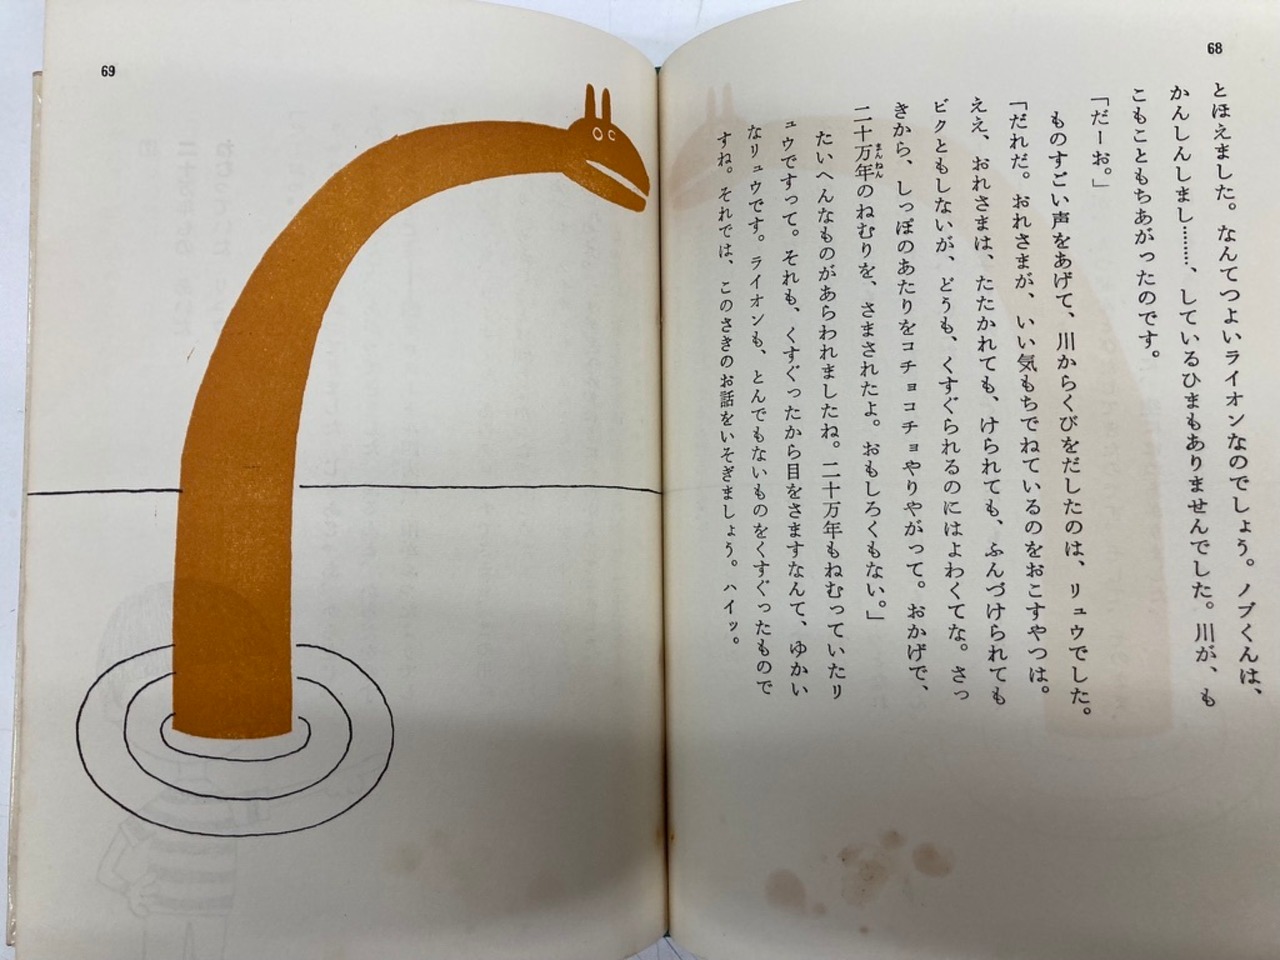 68
とほえました。なんてつよいライオンなのでしょう。ノブくんは、
かんしんしまし………、しているひまもありませんでした。川が、も
こもこともちあがったのです。
「だーお。」
ものすごい声をあげて、川からくびをだしたのは、リュウでした。
「だれだ。おれさまが、いい気もちでねているのをおこすやつは。
ええ、おれさまは、たたかれても、けられても、ふんづけられても
ビクともしないが、どうも、くすぐられるのにはよわくてな。さっ
きから、しっぽのあたりをコチョコチョやりやがって。おかげで、
二十万年のねむりを、さまされたよ。おもしろくもない。」
まんねん
たいへんなものがあらわれましたね。二十万年もねむっていたリ
ュウですって。それも、くすぐったから目をさますなんて、ゆかい
なリュウです。ライオンも、とんでもないものをくすぐったもので
すね。それでは、このさきのお話をいそぎましょう。ハイッ。
69